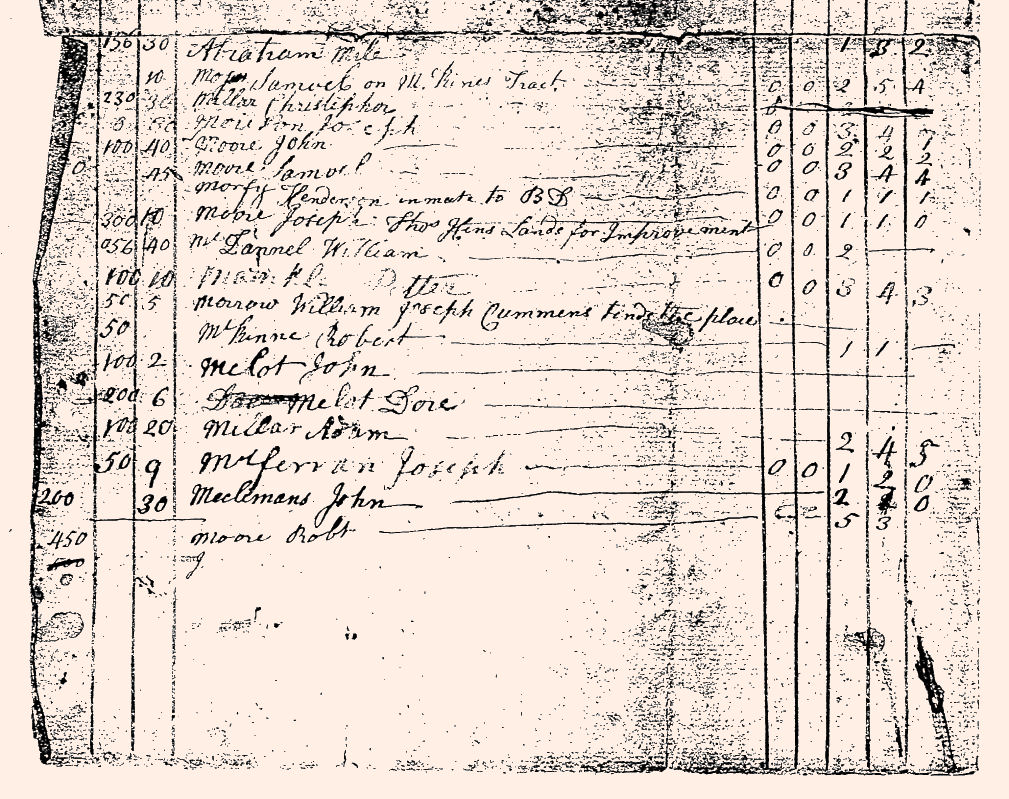 156 30 Abraham Mile 1 3 2
10 Samuel on M. Kines Tract. 0 0 2 5 4
230 30 Millar Christiphor
Morison Joseph 0 0 3 4
100 40 Moore John 0 0 2 2
45 Moore Samuel 0 0 3 4 4
Morfy Henderson inmate to B D 0 0 1 1 1
300 10 Moore Joseph Thos Hins Lands for Improvement 0 0 1 1 0
256 40 Mc Dannel William 0 0 2
100 10 Petter 0 0 3 4 3
50 5 Morrow William Joseph Cummens tends the place
50 McKinne Robert 1 1
100 2 Melot John
200 6 Melot Dore
100 20 Millar Adam 2 4 5
50 9 Joseph 0 0 1 2 0
200 30 Meclemans John 2 0
450 Moore Robt 5 3